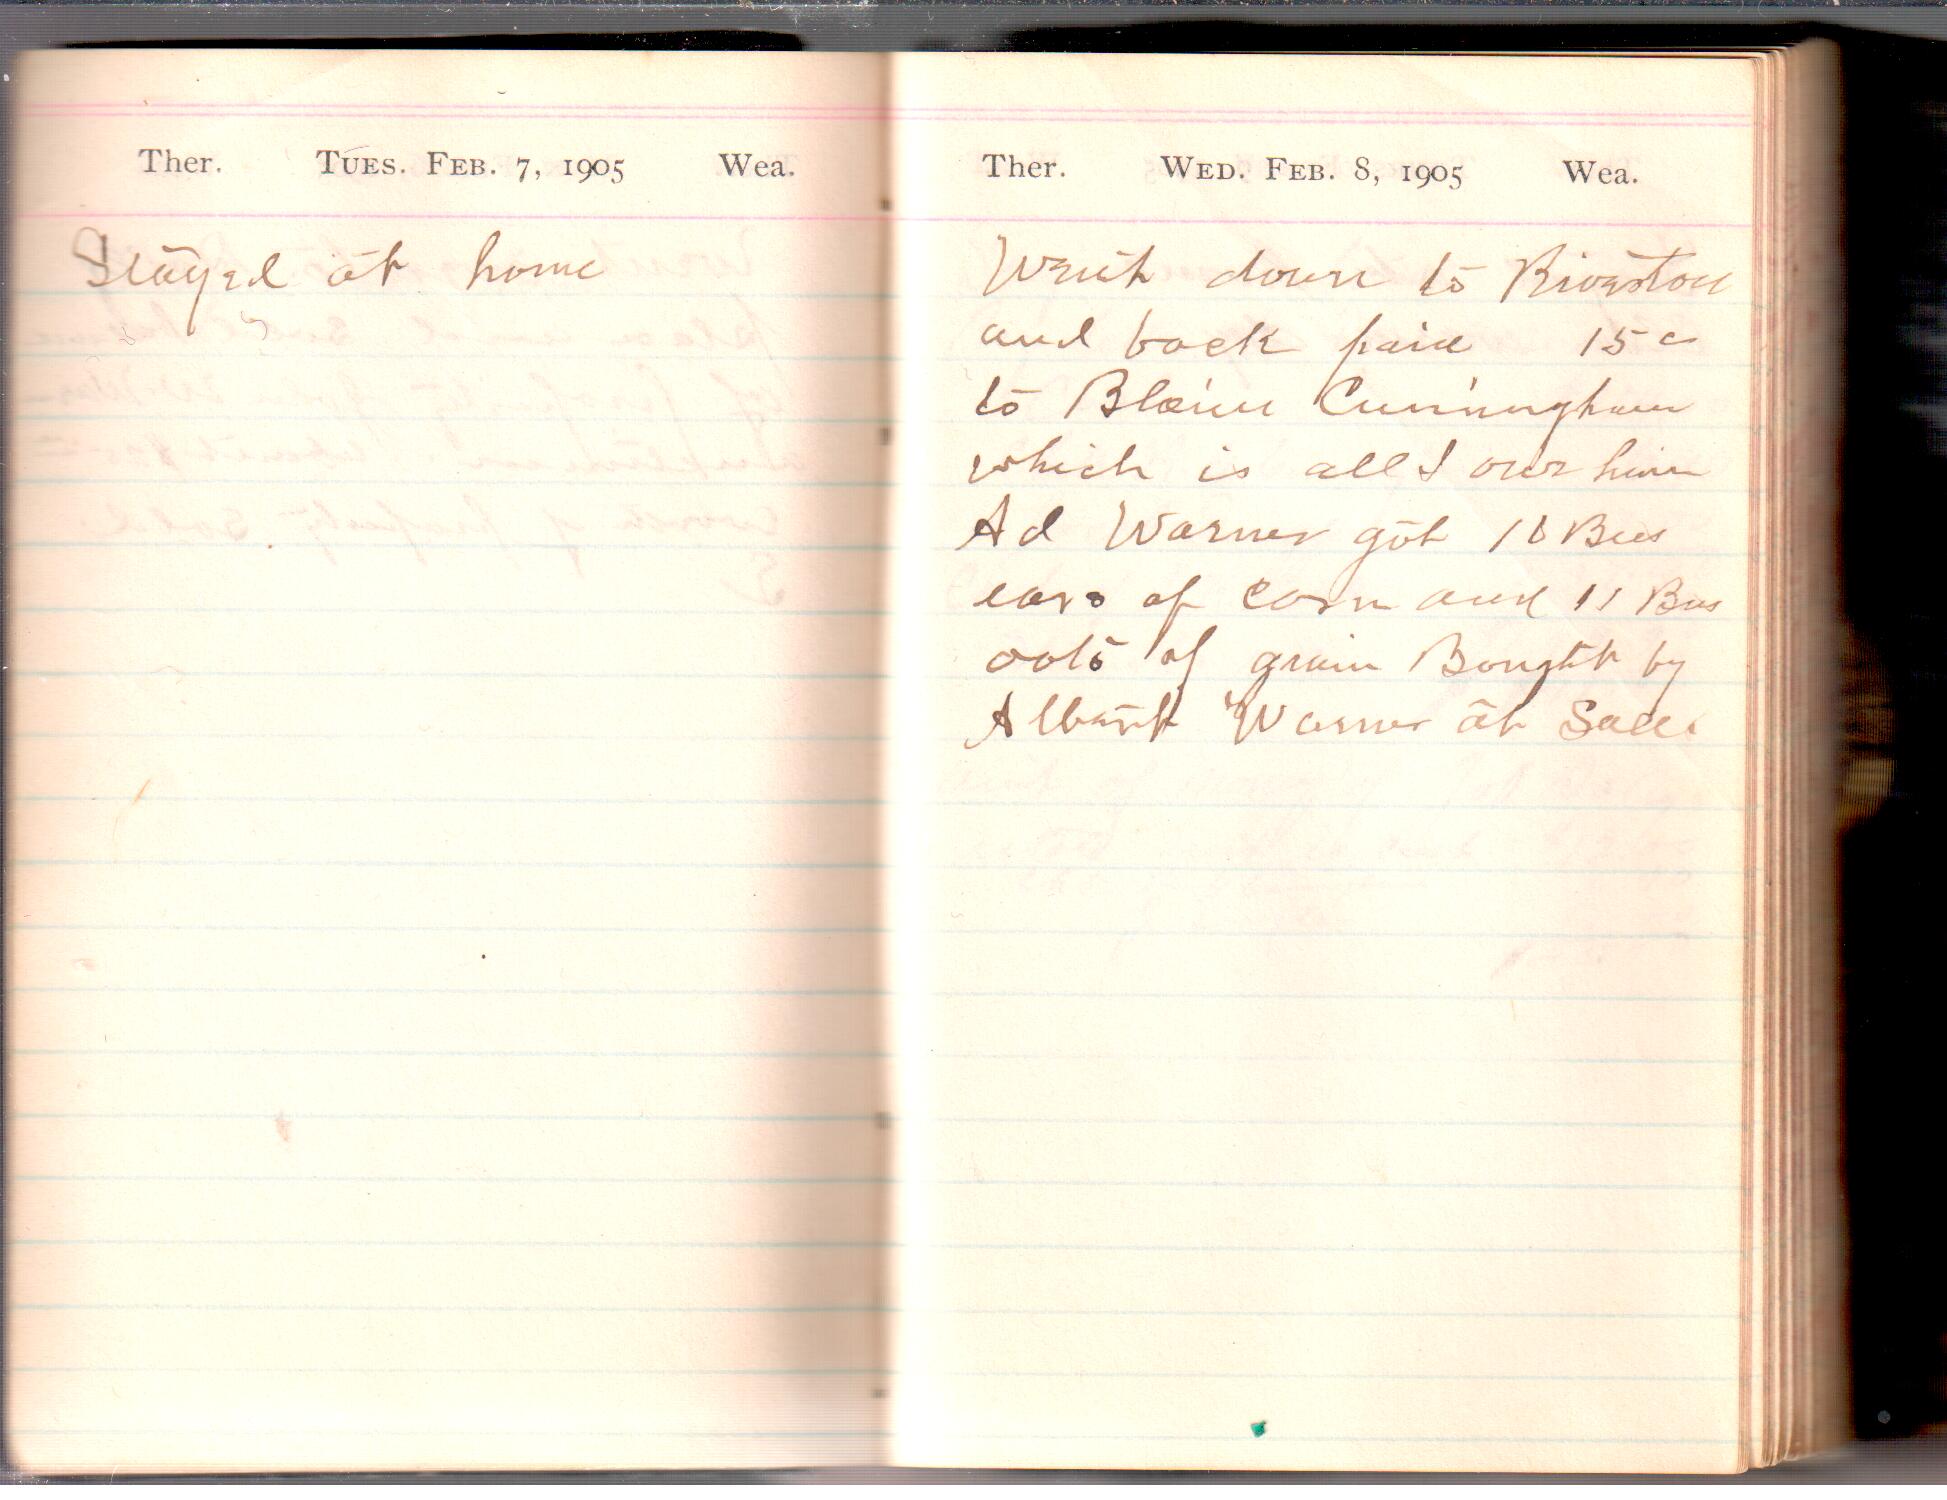 Ther. Tues. Feb. 7, 1905 Wea.
Stayed at home
Ther. Wed. Feb. 8, 1905 Wea.
Went down to Riverton
and back paid 15 c
to Blaine Cunningham
which is all I owe him
Ad Warner got Bus
ears of corn and 11 Bus
oats of grain Bought by
Albert Warner at Sale.